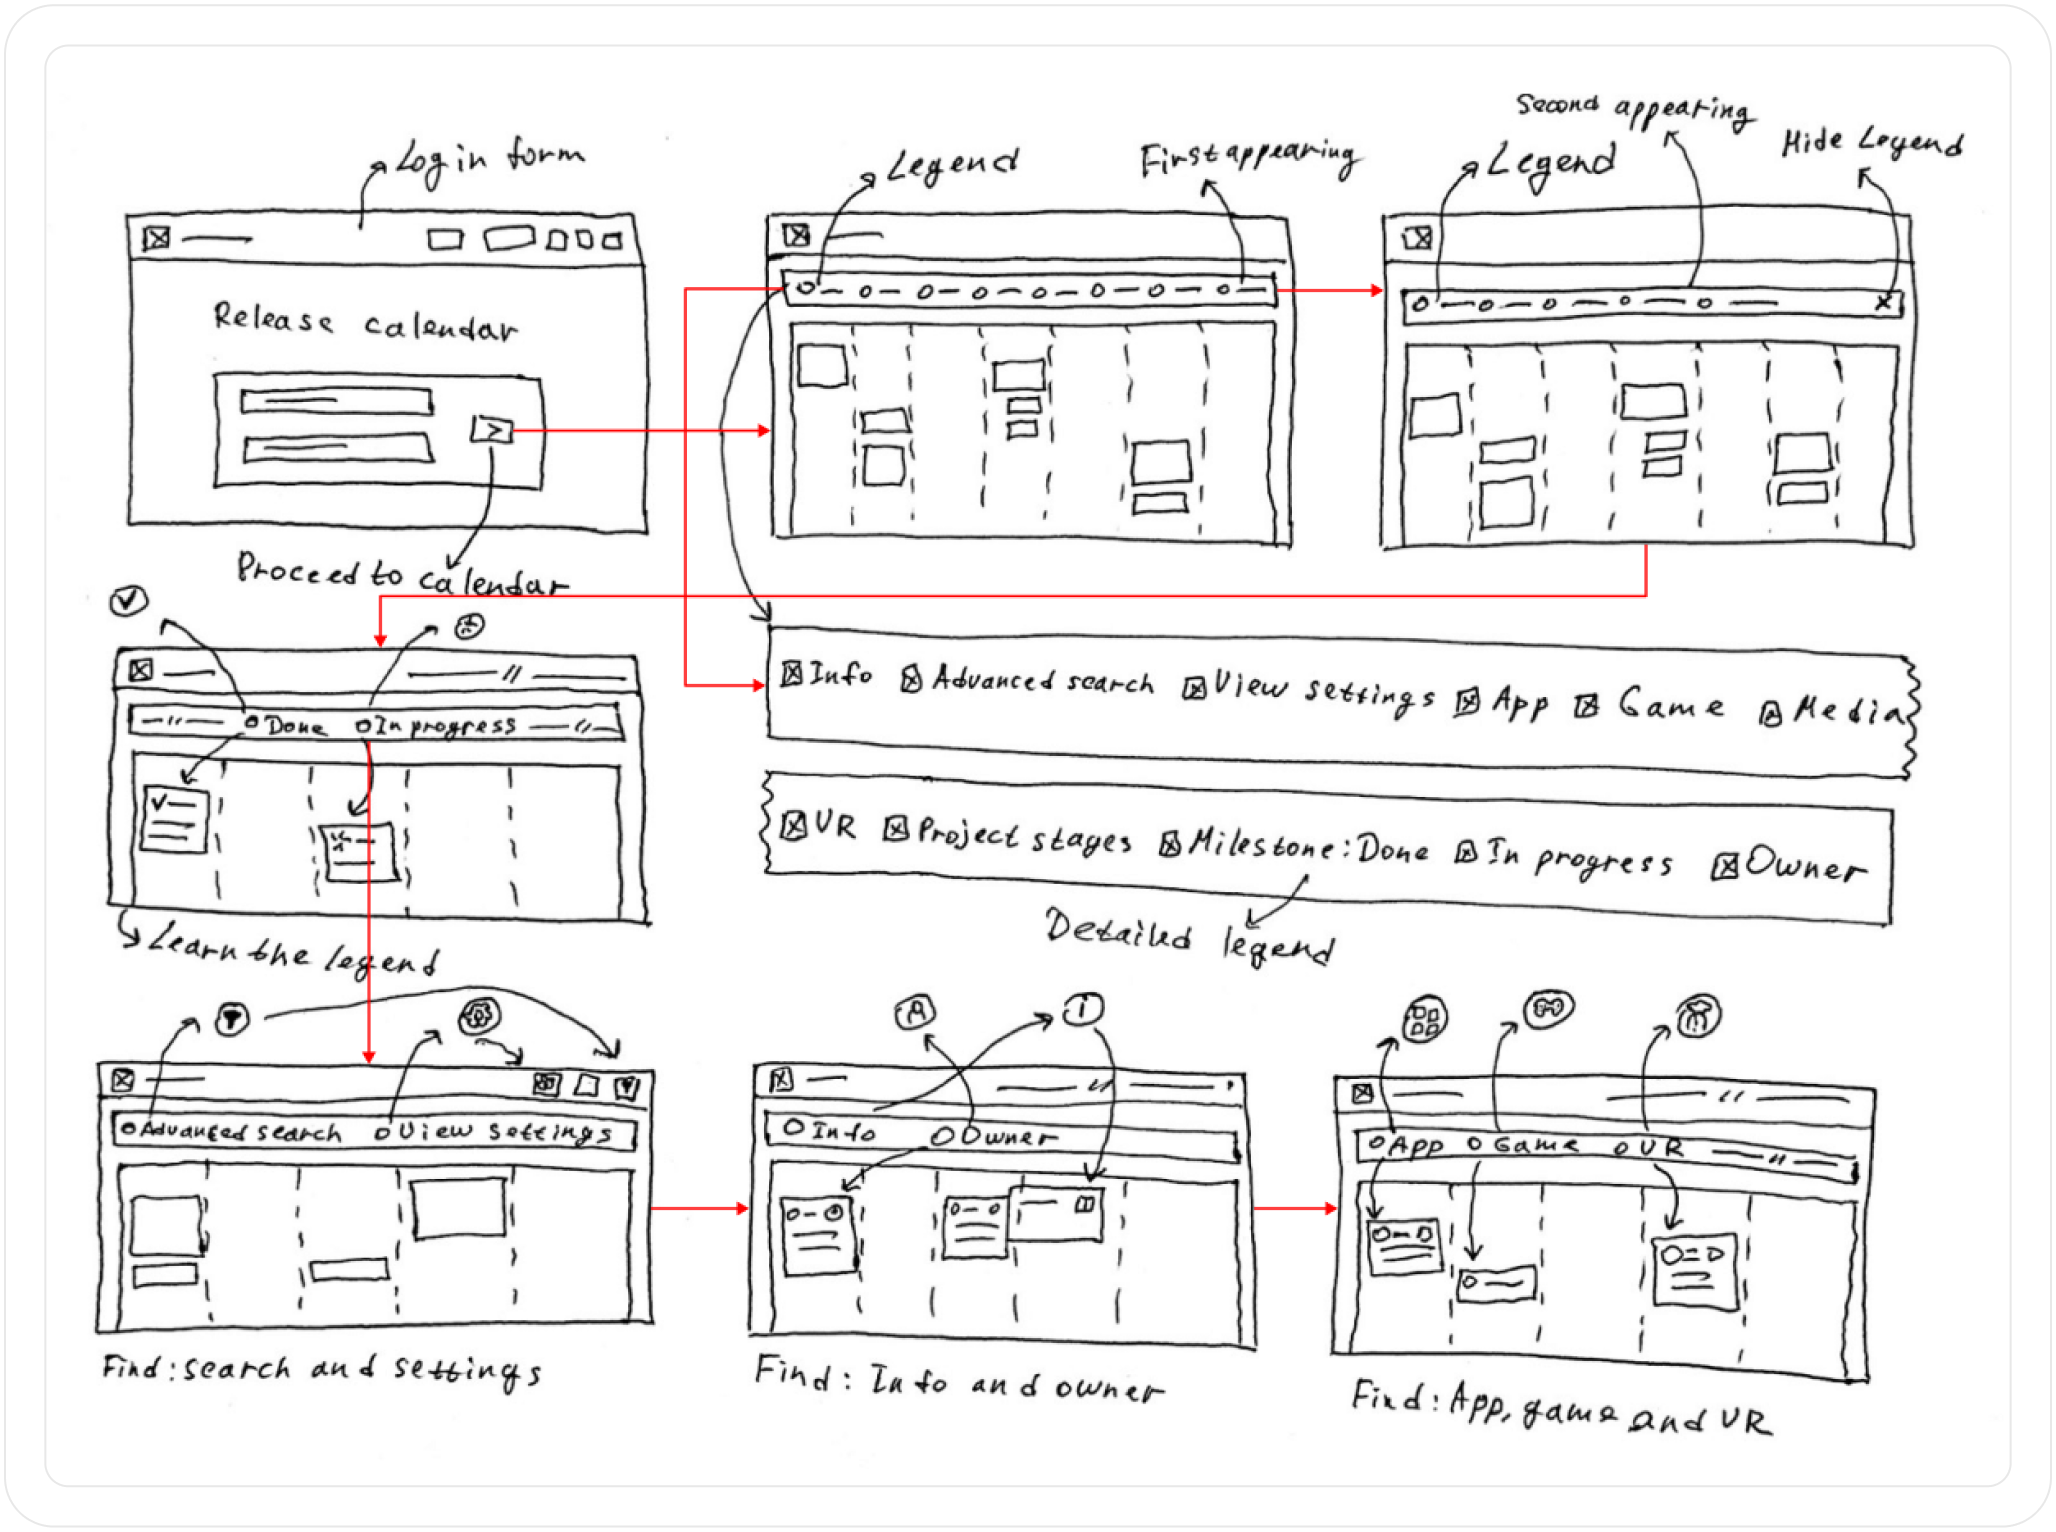 Log in form
Release calendar
Proceed to calendar
Legend
First appearing
Second appearing
Legend
Hide Legend
Done In progress
Learn the legend
Info Advanced search View settings App Game Media
VR Project stages Milestone: Done In progress Owner
Detailed legend
Advanced search View settings
Find: search and settings
i
Info Owner
Find: Info and owner
App Game VR
Find: App, game and VR